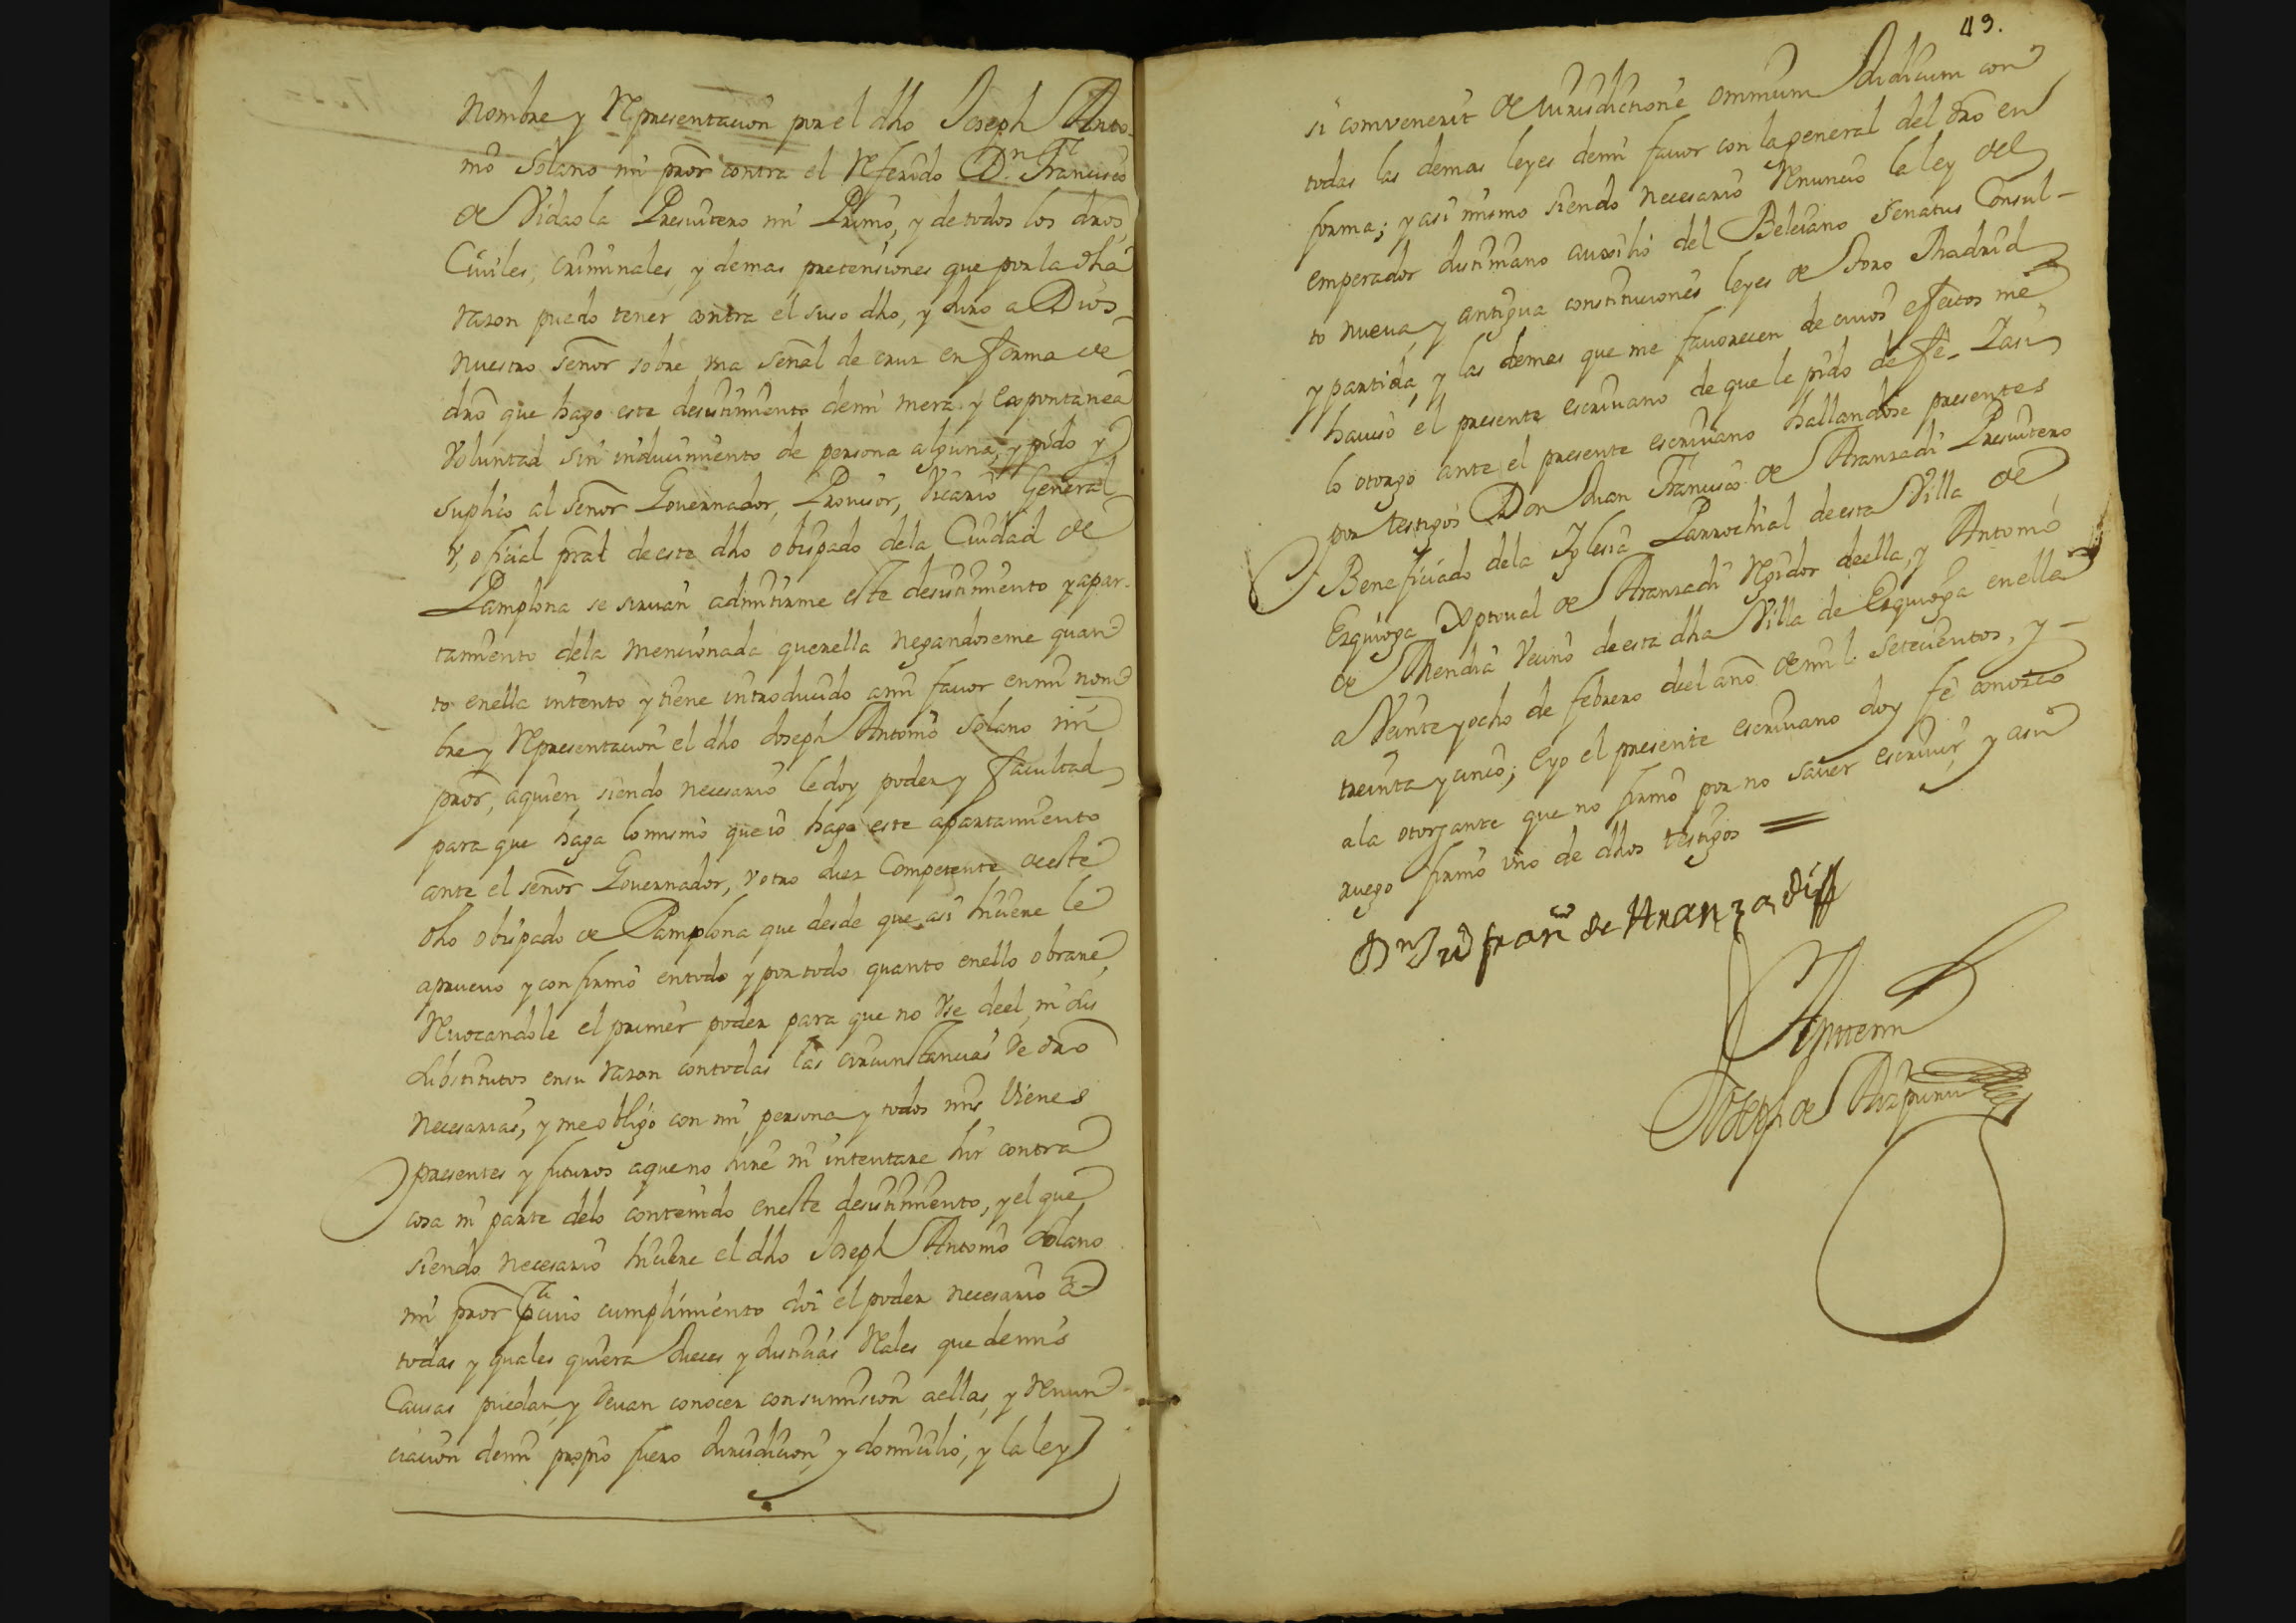 nombre y Representacion por el dho Joseph Anto-
nio Solano mi pror contra el Referido Dn. Francisco
de Vidaola Presuitero mi Primo, y de todos los dros,
Ciuiles, criminales, y demas pretensiones que por la dha
razon puedo tener contra el suso dho, y Juro a Dios
nuestro señor sobre vna señal de cruz en forma de
dro que hago este desistimiento demi mera y Expontanea
Voluntad sin inducimiento de persona alguna, y pido y
suplico al señor Gouernador, Prouisor, Vicario General
y, oficial pral de este dho obispado dela Ciudad de
Pamplona se siruan admitirme este desistimiento y apar-
tamiento dela mencionada querella negandoseme quan
to enella intento y tiene introducido ami fauor enmi nom
bre y Representacion el dho Joseph Antonio Solano mi
pror, aquien siendo necesario ledoy poder y facultad
para que haga lomismo que io hago este apartamiento
ante el señor Gouernador, y otro Juez Competente deeste
dho obispado de Pamplona que desde que asi hiciere le
apruevo y confirmo entodo y por todo quanto enello obrare,
Reuocandole el primer poder para que no Vse deel, ni sus
substitutos ensu razon contodas las circunstancias de dro
necesarias, y meobligo con mi persona y todos mis Vienes
presentes y futuros aqueno hire ni intentare hir contra
cosa ni parte delo contenido eneste desistimiento, y el que
siendo necesario hiciere el dho Joseph Antonio Solano
mi pror pa cuio cumplimiento doi el poder necesario a
todas y quales quiera Jueces y Justicias Reales que de mis
Causas puedan y deuan conocer consumision aellas, y Renun
ciacion demi propio fuero Jurisdicion, y domicilio, y la ley
49.
si comvenerit de Jurisdictione ommium Judicum con
todas las demas leyes demi fauor con la general del dro en
forma; y asi mismo siendo necesario Renuncio la ley del
emperador Justiniano auxilio del Beleiano Senatus Consul-
to nueua, y antigua constituciones leyes de Toro Madrid
y partida, y las demas que me fauorecen de cuios efectos me
hauiso el presente escriuano de que le pido de fe, Y asi
lo otorgo ante el presente escriuano hallandose presentes
por testigos Don Juan Francisco de Aranzadi Presuitero
Beneficiado dela Iglesia Parrochial de esta Villa de
Ezquioga Xptoual de Aranzadi Regidor deella, y Antonio
de Mendia Vecino de esta dha Villa de Ezquioga enella
a Veinte y ocho de febrero del año de mil Setecientos, y-
treinta y cinco; e yo el presente escriuano doy fe conozco
ala otorgante que no firmo por no sauer escriuir, y asu
ruego firmo vno de dhos testigos =
Dn Ju franco de Aranzadi
Antemi
Joseph de Aizpuru